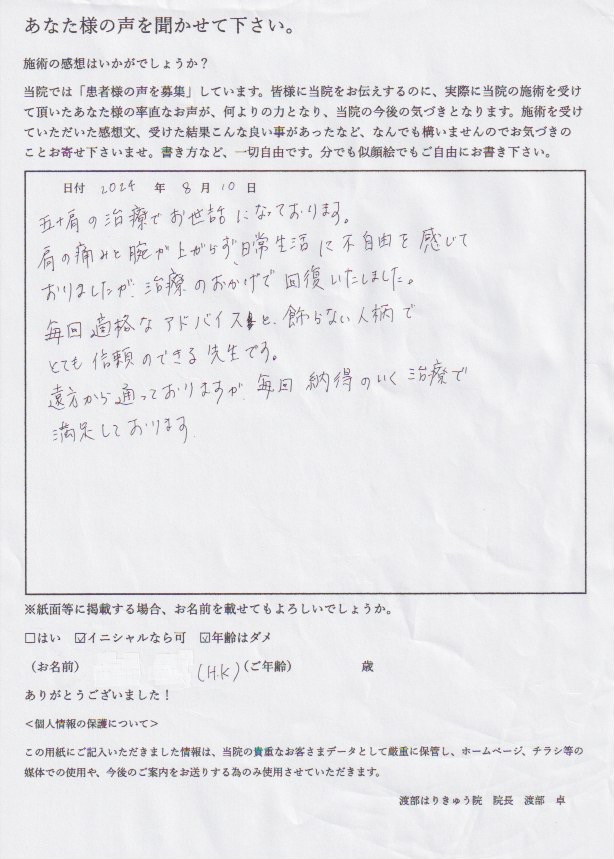 あなた様の声を聞かせて下さい。
施術の感想はいかがでしょうか？
当院では「患者様の声を募集」しています。皆様に当院をお伝えするのに、実際に当院の施術を受け
て頂いたあなた様の率直なお声が、何よりの力となり、当院の今後の気づきとなります。施術を受け
ていただいた感想文、受けた結果こんな良い事があったなど、なんでも構いませんのでお気づきの
ことお寄せ下さいませ。書き方など、一切自由です。分でも似顔絵でもご自由にお書き下さい。
日付 2024 年 8 月 10 日
五十肩の治療でお世話になっております。
肩の痛みと腕が上がらず日常生活に不自由を感じて
おりましたが、治療のおかげで回復いたしました。
毎回適格なアドバイスと、飾らない人柄で
とても信頼のできる先生です。
遠方から通っておりますが、毎回納得のいく治療で
満足しております。
※紙面等に掲載する場合、お名前を載せてもよろしいでしょうか。
☐はい ☑イニシャルなら可 ☑年齢はダメ
（お名前） (H.K) （ご年齢） 歳
ありがとうございました！
＜個人情報の保護について＞
この用紙にご記入いただきました情報は、当院の貴重なお客さまデータとして厳重に保管し、ホームページ、チラシ等の
媒体での使用や、今後のご案内をお送りする為のみ使用させていただきます。
渡部はりきゅう院 院長 渡部 卓